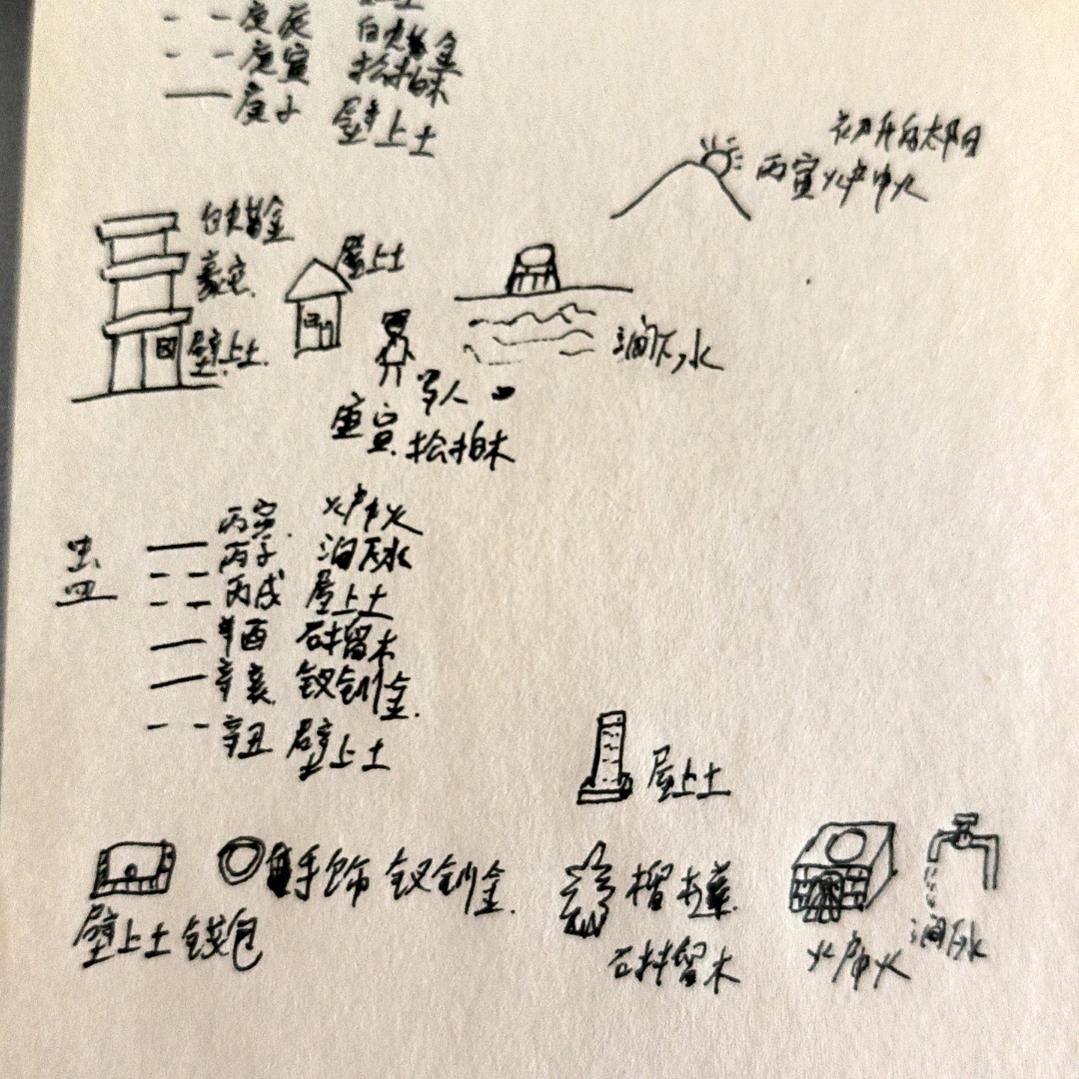 庚辰 白蜡金
庚寅 松柏木
庚子 壁上土
初升的太阳
丙寅炉中火
白蜡金
豪宅
壁上土
屋上土
涧下水
男人
庚寅 松柏木
蛊
丙寅 炉中火
丙子 涧下水
丙戌 屋上土
辛酉 石榴木
辛亥 钗钏金
辛丑 壁上土
屋上土
壁上土 钱包
手饰 钗钏金
榴木
石榴木
炉中火
涧下水